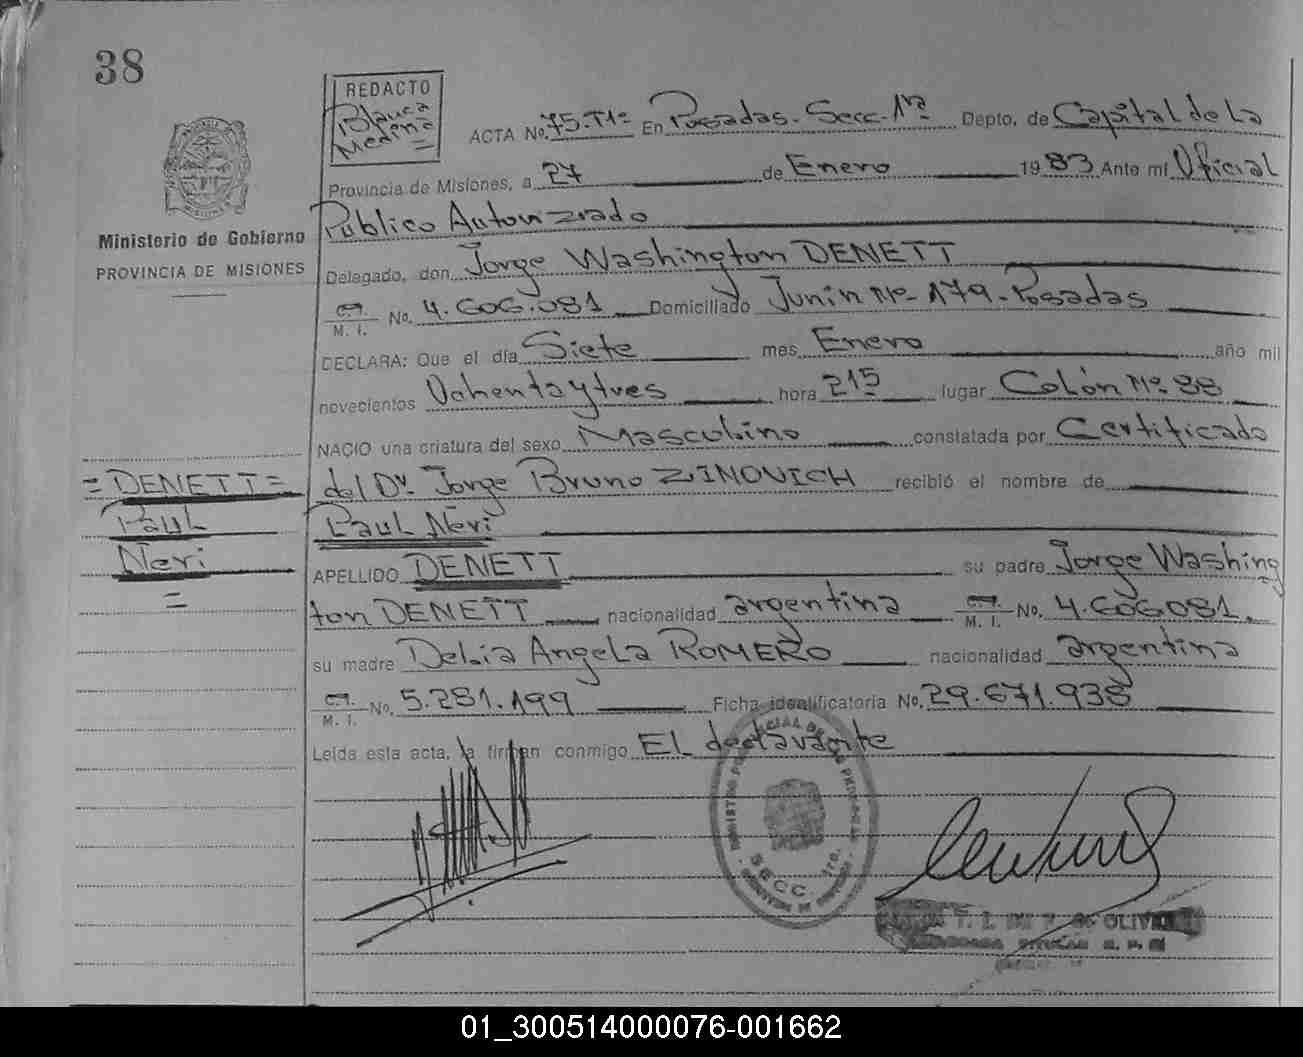 38
REDACTO
Blanca
Medina
ACTA No. 75-T1º En Posadas-Secc-1ra Depto. de Capital de La
Provincia de Misiones, a 27 de Enero 1983 Ante mí Oficial
Público Autorizado
Ministerio de Gobierno
PROVINCIA DE MISIONES
Delegado, don Jorge Washington DENETT
C.I. M. I. No. 4.606.081 Domiciliado Junín Nº-179-Posadas
DECLARA: Que el día Siete mes Enero año mil
novecientos Ochenta y tres hora 2 15 lugar Colón Nº.88
NACIO una criatura del sexo Masculino constatada por Certificado
del Dr. Jorge Bruno ZINOVICH recibió el nombre de
=DENETT=
Paul
Neri
=
Paul Neri
APELLIDO DENETT su padre Jorge Washing
ton DENETT nacionalidad argentina C.I. M. I. No. 4.606.081.
su madre Delia Angela ROMERO nacionalidad argentina
C.I. M. I. No. 5.281.199 Ficha identificatoria No. 29.671.938
Leída esta acta, la firman conmigo EL declarante
SECC. 1ra.
01_300514000076-001662